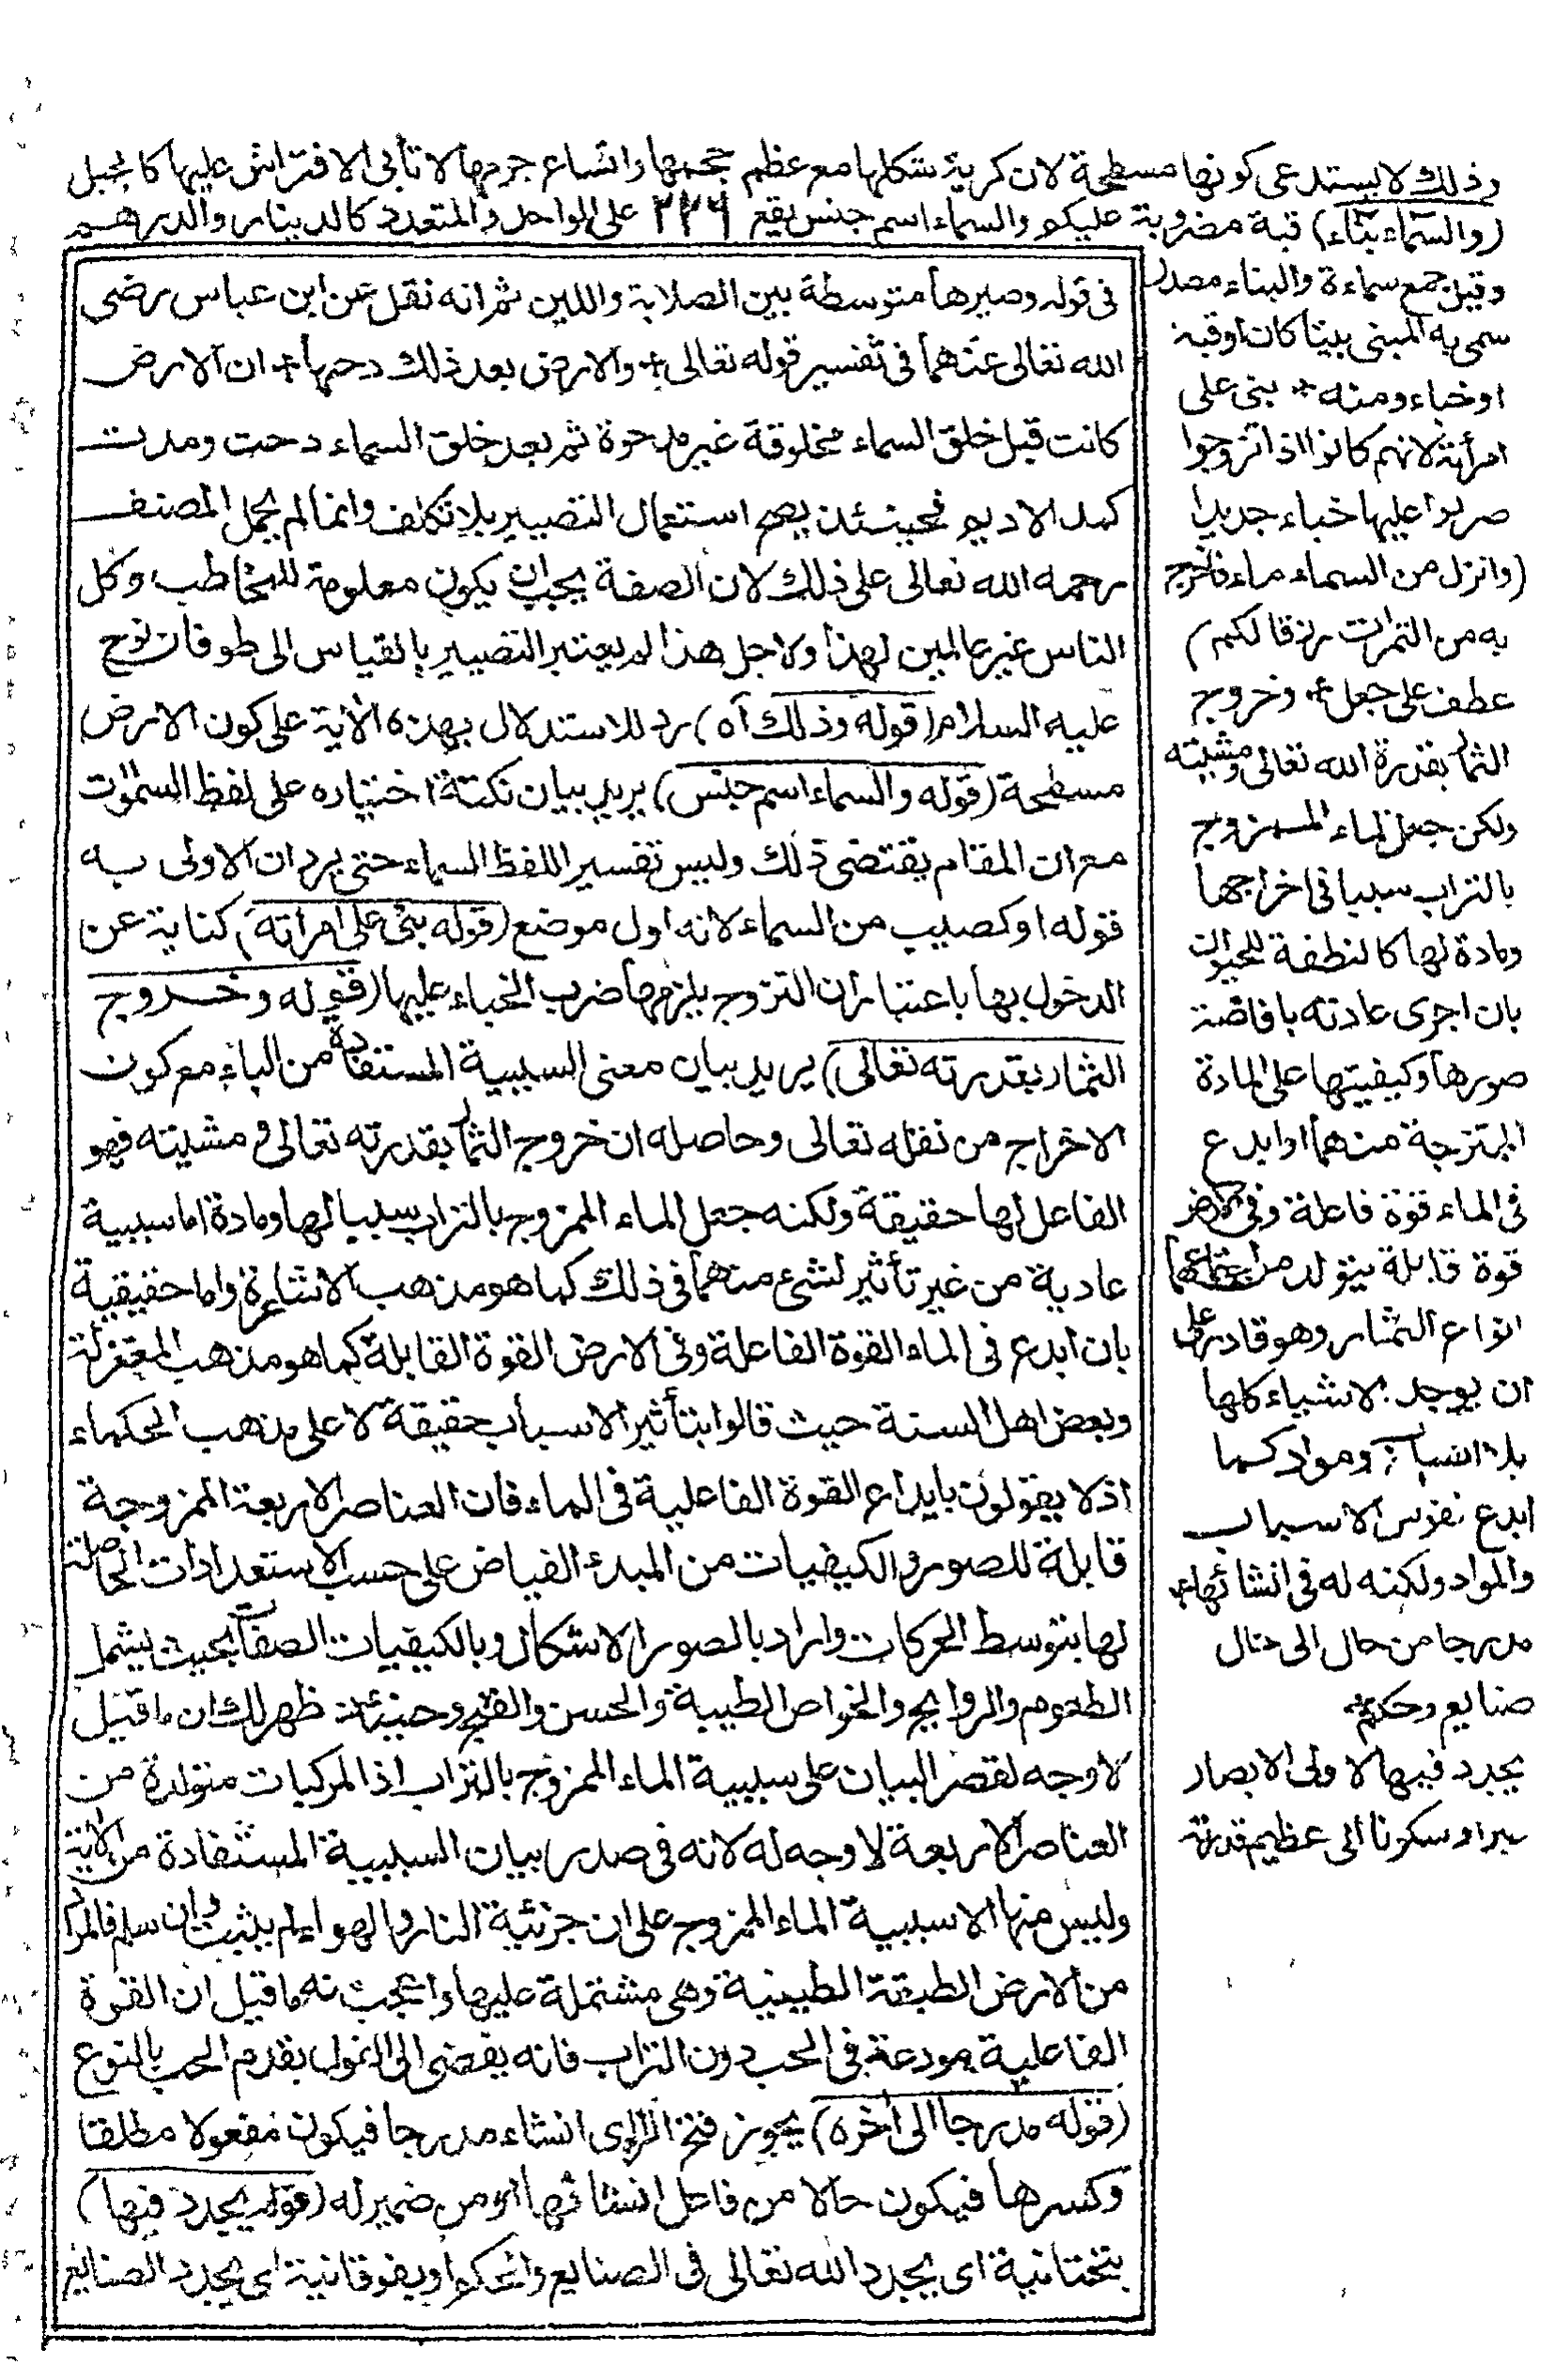 وذلك لا يستدعى كونها مسطحة لان كرية شكلها مع عظم حجمها واتساع جرمها لا تأبى الافتراش عليها كالجبل
(والسماء بناء) قبة مضروبة عليكم والسماء اسم جنس يقع ٢٢٦ على الواحد والمتعدد كالدينار والدرهم
وقيل جمع سماءة والبناء مصدر
سمى به المبنى بيتا كان اوقبة
اوخباء ومنه * بنى على
امرأته لانهم كانوا اذا تزوجوا
ضربوا عليها خباء جديدا
(وانزل من السماء ماء فاخرج
به من الثمرات رزقا لكم)
عطف على جعل * وخروج
الثمار بقدرة الله تعالى ومشيته
ولكن جعل الماء الممزوج
بالتراب سببا فى اخراجها
ومادة لها كالنطفة للحيوان
بان اجرى عادته بافاضة
صورها وكيفيتها على المادة
الممتزجة منهما او ابدع
فى الماء قوة فاعلة وفى الارض
قوة قابلة يتولد من اجتماعهما
انواع الثمار وهو قادر على
ان يوجد الاشياء كلها
بلا اسباب ومواد كما
ابدع نفوس الاسباب
والمواد ولكنه له فى انشائها
مدرجا من حال الى حال
صنايع وحكم
يجدد فيها لاولى الابصار
عبرا وسكونا الى عظيم قدرته
فى قوله وصيرها متوسطة بين الصلابة واللين ثم انه نقل عن ابن عباس رضى
الله تعالى عنهما فى تفسير قوله تعالى * والارض بعد ذلك دحيها * ان الارض
كانت قبل خلق السماء مخلوقة غير مدحوة ثم بعد خلق السماء دحت ومدت
كمد الاديم فحينئذ يصح استعمال التصيير بلا تكلف وانما لم يحمل المصنف
رحمه الله تعالى على ذلك لان الصفة يجب ان يكون معلومة للمخاطب وكل
الناس غير عالمين لهذا ولاجل هذا لم يعتبر التصيير بالقياس الى طوفان نوح
عليه السلام (قوله وذلك آه) رد للاستدلال بهذه الآية على كون الارض
مسطحة (قوله والسماء اسم جنس) يريد بيان نكتة اختياره على لفظ السموات
مع ان المقام يقتضى ذلك وليس تفسيرا للفظ السماء حتى يرد ان الاولى به
قوله او كصيب من السماء لانه اول موضع (قوله بنى على امراته) كناية عن
الدخول بها باعتبار ان التزوج يلزمها ضرب الخباء عليها (قوله وخروج
الثمار بقدرته تعالى) يريد بيان معنى السببية المستفادة من الباء مع كون
الاخراج من فعله تعالى وحاصله ان خروج الثمار بقدرته تعالى ومشيته فهو
الفاعل لها حقيقة ولكنه جعل الماء الممزوج بالتراب سببا لها ومادة اما سببية
عادية من غير تأثير لشئ منهما فى ذلك كما هو مذهب الاشاعرة واما حقيقية
بان ابدع فى الماء القوة الفاعلة وفى الارض القوة القابلة كما هو مذهب المعتزلة
وبعض اهل السنة حيث قالوا بتأثير الاسباب حقيقة لا على مذهب الحكماء
اذ لا يقولون بايداع القوة الفاعلية فى الماء فان العناصر الاربعة الممزوجة
قابلة للصور والكيفيات من المبدء الفياض على حسب الاستعدادات الحاصلة
لها بتوسط الحركات واراد بالصور الاشكال وبالكيفيات الصفات بحيث يشمل
الطعوم والروايح والخواص الطيبة والحسن والقبح وحينئذ ظهر لك ان ما قيل
لا وجه لقصر البيان على سببية الماء الممزوج بالتراب اذ المركبات متولدة من
العناصر الاربعة لا وجه له لانه فى صدر بيان السببية المستفادة من الاية
وليس منها الا سببية الماء الممزوج على ان جزئية النار والهواء لم يثبت وان سلم فالمراد
من الارض الطبقة الطينية وهى مشتملة عليها واعجب منه ما قيل ان القوة
الفاعلية مودعة فى الحب دون التراب فانه يفضى الى القول بقدم الحب بالنوع
(قوله مدرجا الى آخره) يجوز فتح الراء اى انشاء مدرجا فيكون مفعولا مطلقا
وكسرها فيكون حالا من فاعل انشائها او من ضمير له (قوله يجدد فيها)
بتحتانية اى يجدد الله تعالى فى الصنايع والحكم او بفوقانية اى تجدد الصنايع